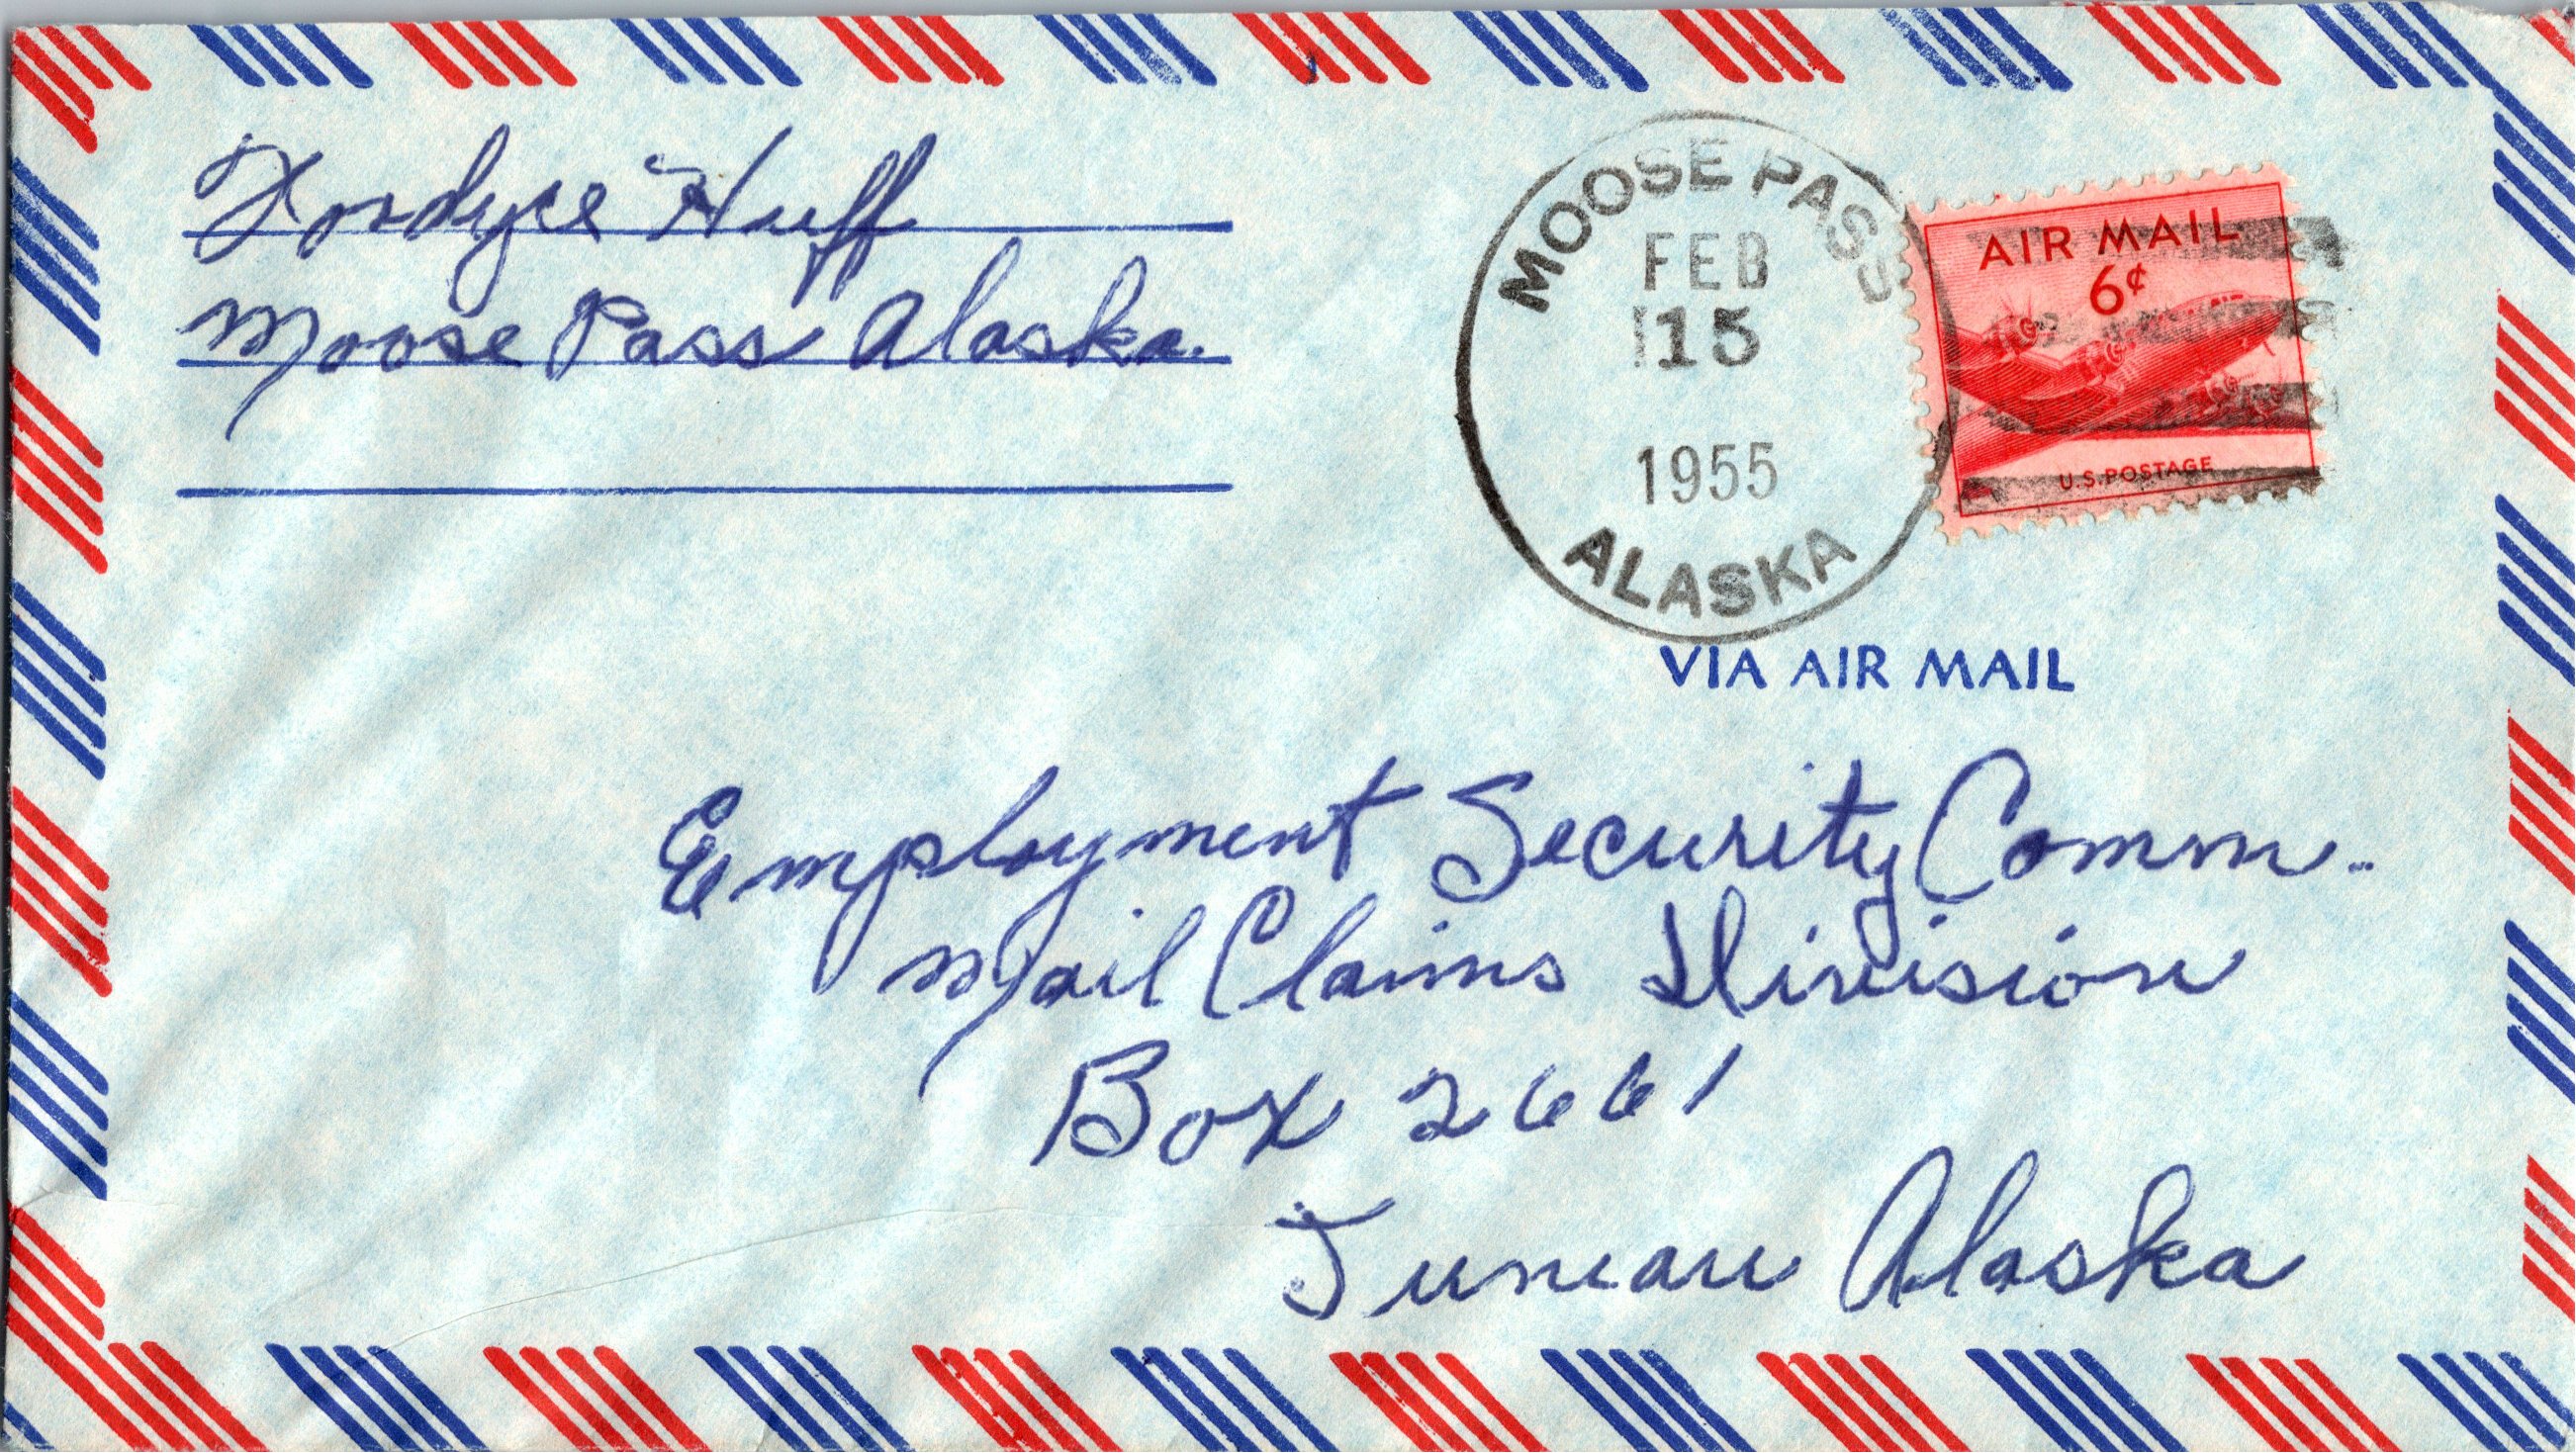 Fordyce Huff
Moose Pass Alaska.
MOOSE PASS
FEB
15
1955
ALASKA
AIR MAIL
6¢
U.S. POSTAGE
VIA AIR MAIL
Employment Security Comm.
Mail Claims Division
Box 2661
Juneau Alaska